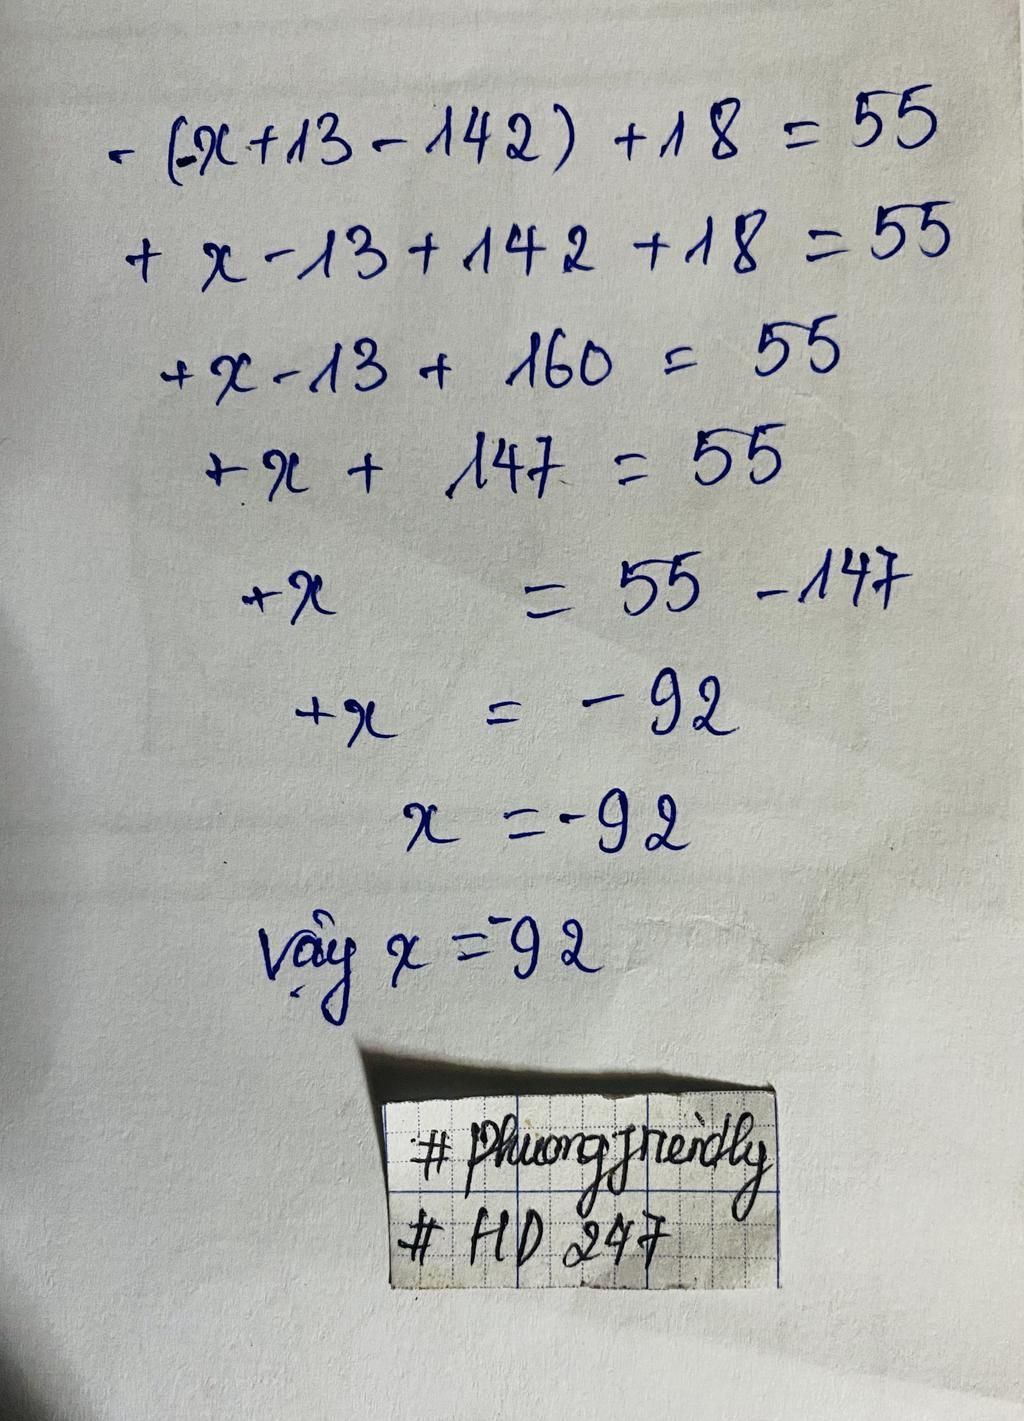 - (-x+13-142) +18 = 55
+ x -13+142 +18 = 55
+x -13 + 160 = 55
+x + 147 = 55
+x = 55 -147
+x = - 92
x = -92
Vậy x = -92
# phuongfriendly
# HD 247